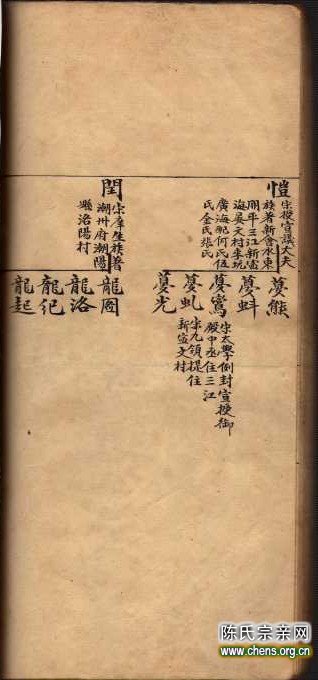 愷
宋授宣議大夫
族著新會水東
開平三江新寧
海晏文村李坑
廣海配何氏伍
氏金氏張氏
閏
宋庠生族著
潮州府潮陽
縣洛陽村
夢熊
夢蚪
夢鸞
宋太學例封宣授御
殿中丞住三江
夢虬
宋九領提住
新寧文村
夢光
龍圖
龍洛
龍圯
龍起
陈氏宗亲网
www.chens.org.cn